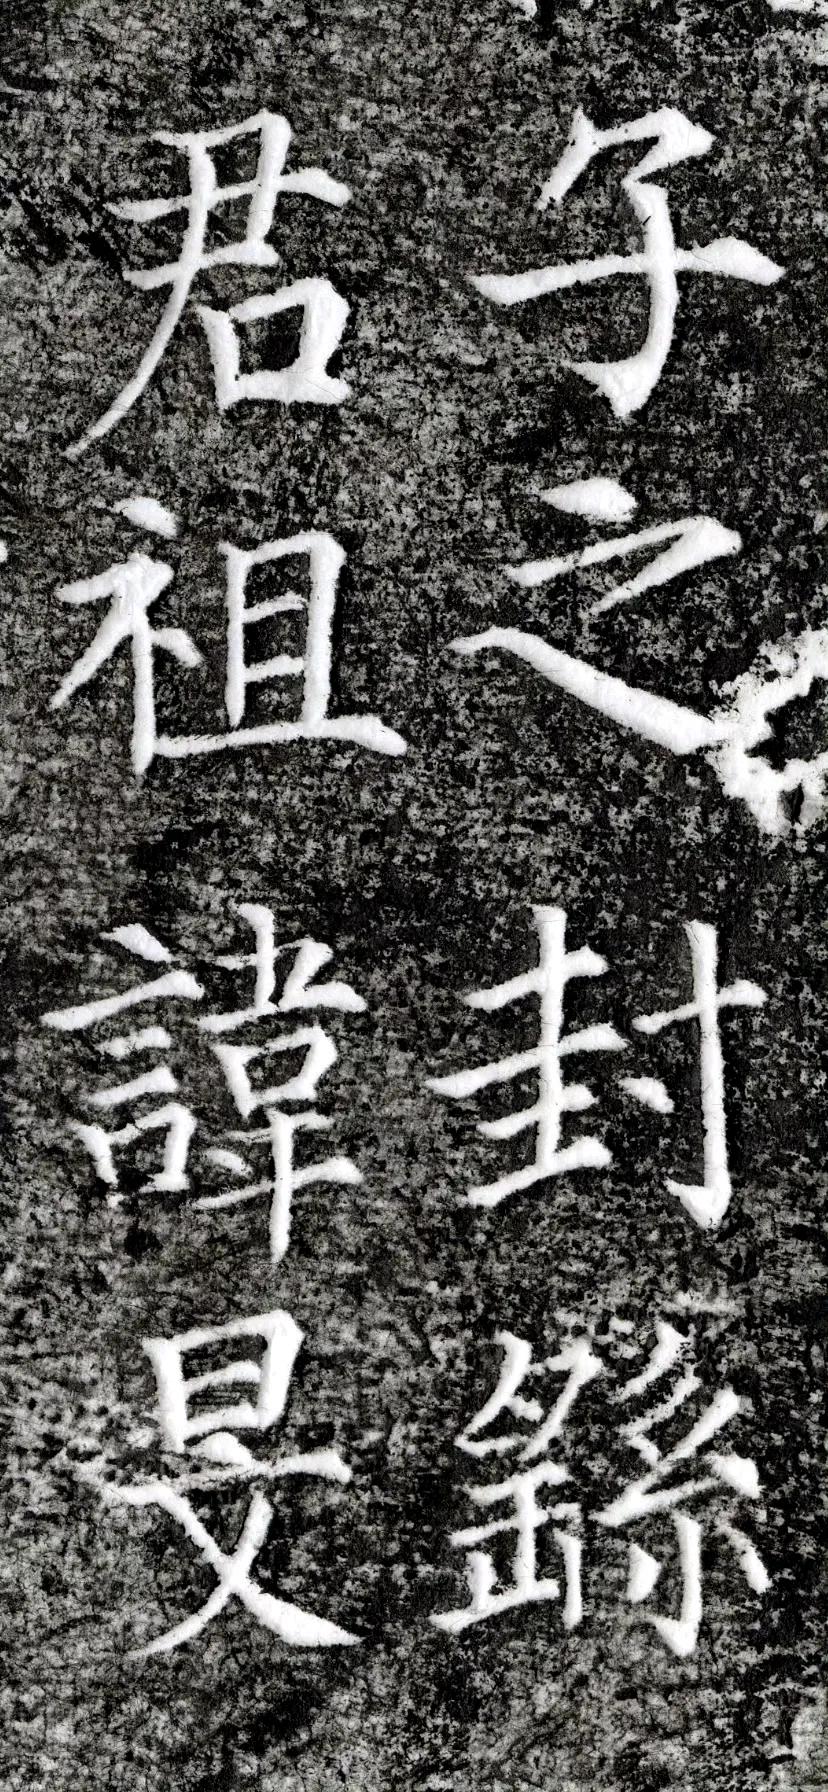 子之封繇
君祖諱旻